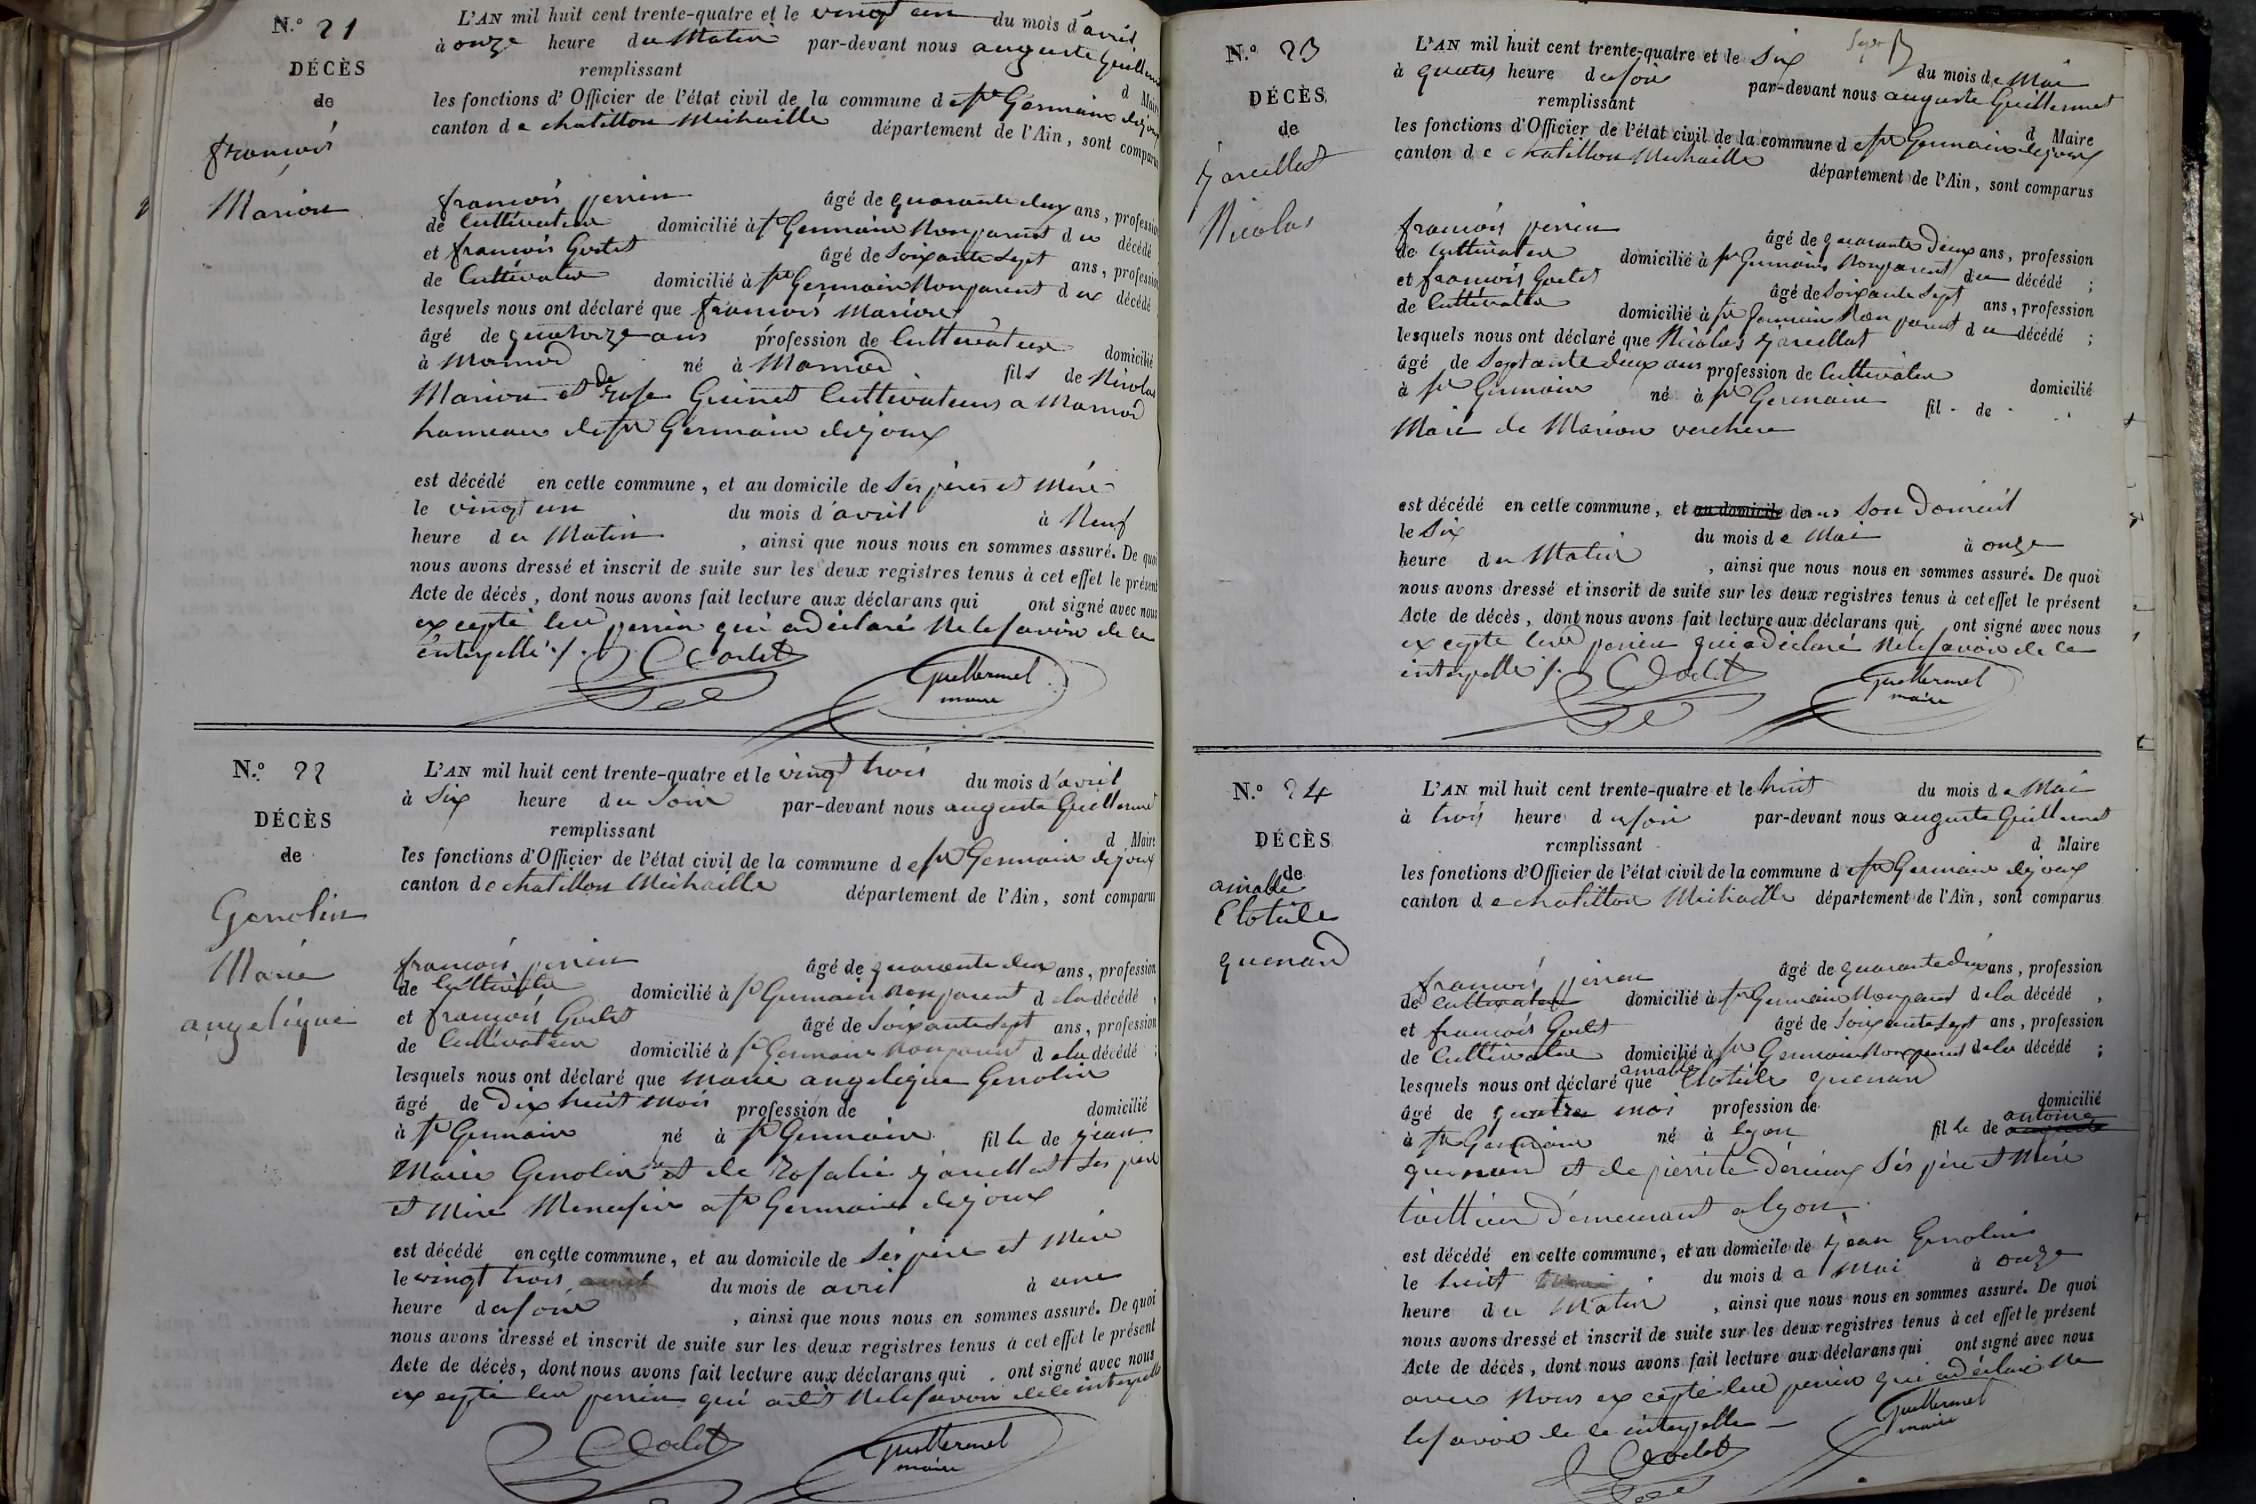 N.º 21
DÉCÈS
de
francois
Marion
L'AN mil huit cent trente-quatre et le vingt un du mois d'avril
à onze heure du Matin par-devant nous auguste Guillermet
remplissant d Maire
les fonctions d'Officier de l'état civil de la commune de st Germain dejoux
canton de chatillon Michaille département de l'Ain, sont comparus
francois perrin âgé de quarante deux ans, profession
de Cultivateur domicilié à st Germain Non parent du décédé
et francois Godet âgé de Soixante Sept ans, profession
de Cultivateur domicilié à st Germain Non parent du décédé
lesquels nous ont déclaré que francois Marion
âgé de quatorze ans profession de Cultivateur domicilié
à Marnod né à Marnod fils de Nicolas
Marion et de Rose Guinet Cultivateurs a Marnod
hameau de st Germain dejoux
est décédé en cette commune, et au domicile de Ses pères et Mère
le vingt un du mois d'avril à Neuf
heure du Matin, ainsi que nous nous en sommes assuré. De quoi
nous avons dressé et inscrit de suite sur les deux registres tenus à cet effet le présent
Acte de décès, dont nous avons fait lecture aux déclarans qui ont signé avec nous
excepté led perrin qui a déclaré Ne le savoir de ce
interpellé ./.
Godet Guillermet
maire
N.º 22
DÉCÈS
de
Genolin
Marie
angelique
L'AN mil huit cent trente-quatre et le vingt trois du mois d'avril
à Six heure du Soir par-devant nous auguste Guillermet
remplissant d Maire
les fonctions d'Officier de l'état civil de la commune de st Germain dejoux
canton de chatillon Michaille département de l'Ain, sont comparus
francois perrin âgé de quarante deux ans, profession
de Cultivateur domicilié à st Germain Non parent de la décédé,
et francois Godet âgé de Soixante Sept ans, profession
de Cultivateur domicilié à st Germain Non parent de la décédé;
lesquels nous ont déclaré que Marie angelique Genolin
âgé de Dix huit Mois profession de domicilié
à st Germain né à st Germain fille de jean
Marie Genolin et de Rosalie jarcellat Ses père
et Mère Menusier a st Germain dejoux
est décédé en cette commune, et au domicile de Ses père et Mère
le vingt trois avril du mois de avril à une
heure du soir, ainsi que nous nous en sommes assuré. De quoi
nous avons dressé et inscrit de suite sur les deux registres tenus à cet effet le présent
Acte de décès, dont nous avons fait lecture aux déclarans qui ont signé avec nous
excepté led perrin qui a dit Ne le savoir de ce interpellé
Godet Guillermet
maire
N.º 23
DÉCÈS
de
jarcellat
Nicolas
L'AN mil huit cent trente-quatre et le Six du mois de Mai
à quatre heure du soir par-devant nous auguste Guillermet
remplissant d Maire
les fonctions d'Officier de l'état civil de la commune de st Germain dejoux
canton de chatillon Michaille département de l'Ain, sont comparus
francois perrin âgé de quarante Deux ans, profession
de Cultivateur domicilié à st Germain Non parent du décédé;
et francois Godet âgé de Soixante Sept ans, profession
de Cultivateur domicilié à st Germain Non parent du décédé;
lesquels nous ont déclaré que Nicolas jarcellat
âgé de Septante deux ans profession de Cultivateur domicilié
à st Germain né à st Germain fil de
Marié de Marion verchere
est décédé en cette commune, et au domicile dans Son Domicil
le Six du mois de Mai à onze
heure du Matin, ainsi que nous nous en sommes assuré. De quoi
nous avons dressé et inscrit de suite sur les deux registres tenus à cet effet le présent
Acte de décès, dont nous avons fait lecture aux déclarans qui ont signé avec nous
excepté led perrin qui a déclaré Ne le savoir de ce
interpellé ./.
Godet Guillermet
maire
N.º 24
DÉCÈS
de
aimable
Clotilde
quenard
L'AN mil huit cent trente-quatre et le huit du mois de Mai
à trois heure du soir par-devant nous auguste Guillermet
remplissant d Maire
les fonctions d'Officier de l'état civil de la commune de st Germain dejoux
canton de chatillon Michaille département de l'Ain, sont comparus
francois perrin âgé de quarante deux ans, profession
de cultivateur domicilié à st Germain Non parent de la décédé,
et francois Godet âgé de Soixante Sept ans, profession
de Cultivateur domicilié à st Germain Non parent de la décédé;
lesquels nous ont déclaré que aimable Clotilde quenard
âgé de quatre mois profession de domicilié
à st Germain né à lyon fille de antoine
quenard et de pierrete Ses père et Mère
Demeurant a lyon
est décédé en cette commune, et au domicile de jean Genolin
le huit du mois de Mai à onze
heure du Matin, ainsi que nous nous en sommes assuré. De quoi
nous avons dressé et inscrit de suite sur les deux registres tenus à cet effet le présent
Acte de décès, dont nous avons fait lecture aux déclarans qui ont signé avec nous
avec Nous excepté led perrin qui a déclaré Ne
le savoir de ce interpellé
Godet Guillermet
maire